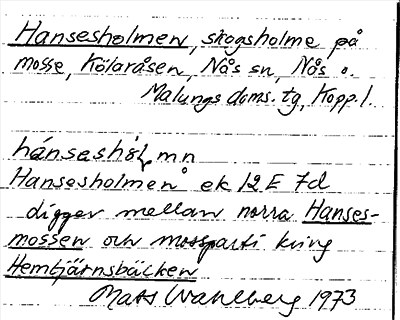 Hansesholmen, skogsholme på
mosse, Kölaråsen, Nås sn, Nås o.
Malungs doms. tg, Kopp. l.
hánseshól, mn
Hansesholmen ek 12 E 7d
digger mellan norra Hanses-
mossen och mossparti kring
Hemtjärnsbäcken
Mats Wahlberg 1973